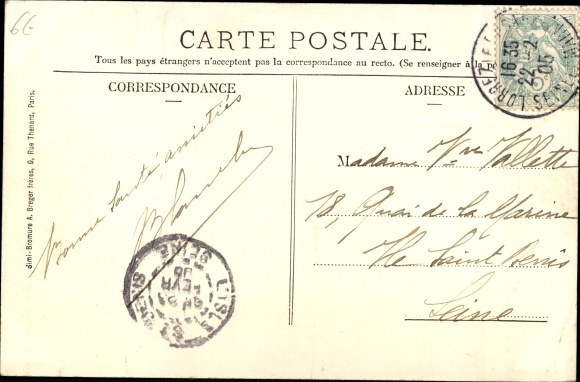 6€
CARTE POSTALE.
Tous les pays étrangers n'acceptent pas la correspondance au recto. (Se renseigner à la
CORRESPONDANCE
ADRESSE
Simi-Bromure A. Breger frères, 9, Rue Thenard, Paris.
Bonne Santé, amitiés
Madame Vve Vallette
18, Quai de la Marine
Ile Saint Denis
Seine
16 35
22 -2
05
L'ISLE
SEINE
FEVR